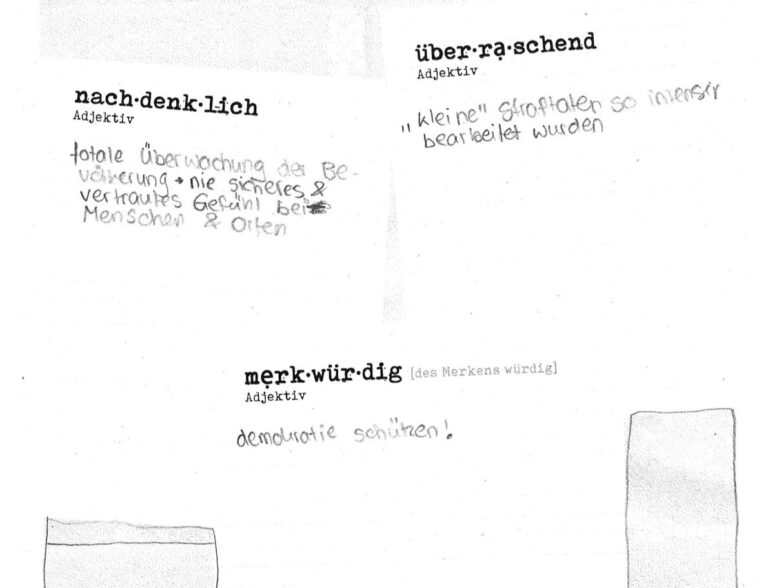 nach·denk·lich
Adjektiv
totale Überwachung der Be-
völkerung → nie sicheres &
vertrautes Gefühl bei
Menschen & Orten
über·rạ·schend
Adjektiv
„kleine" Straftaten so intensiv
bearbeitet wurden
mẹrk·wür·dig [des Merkens würdig]
Adjektiv
demokratie schützen!